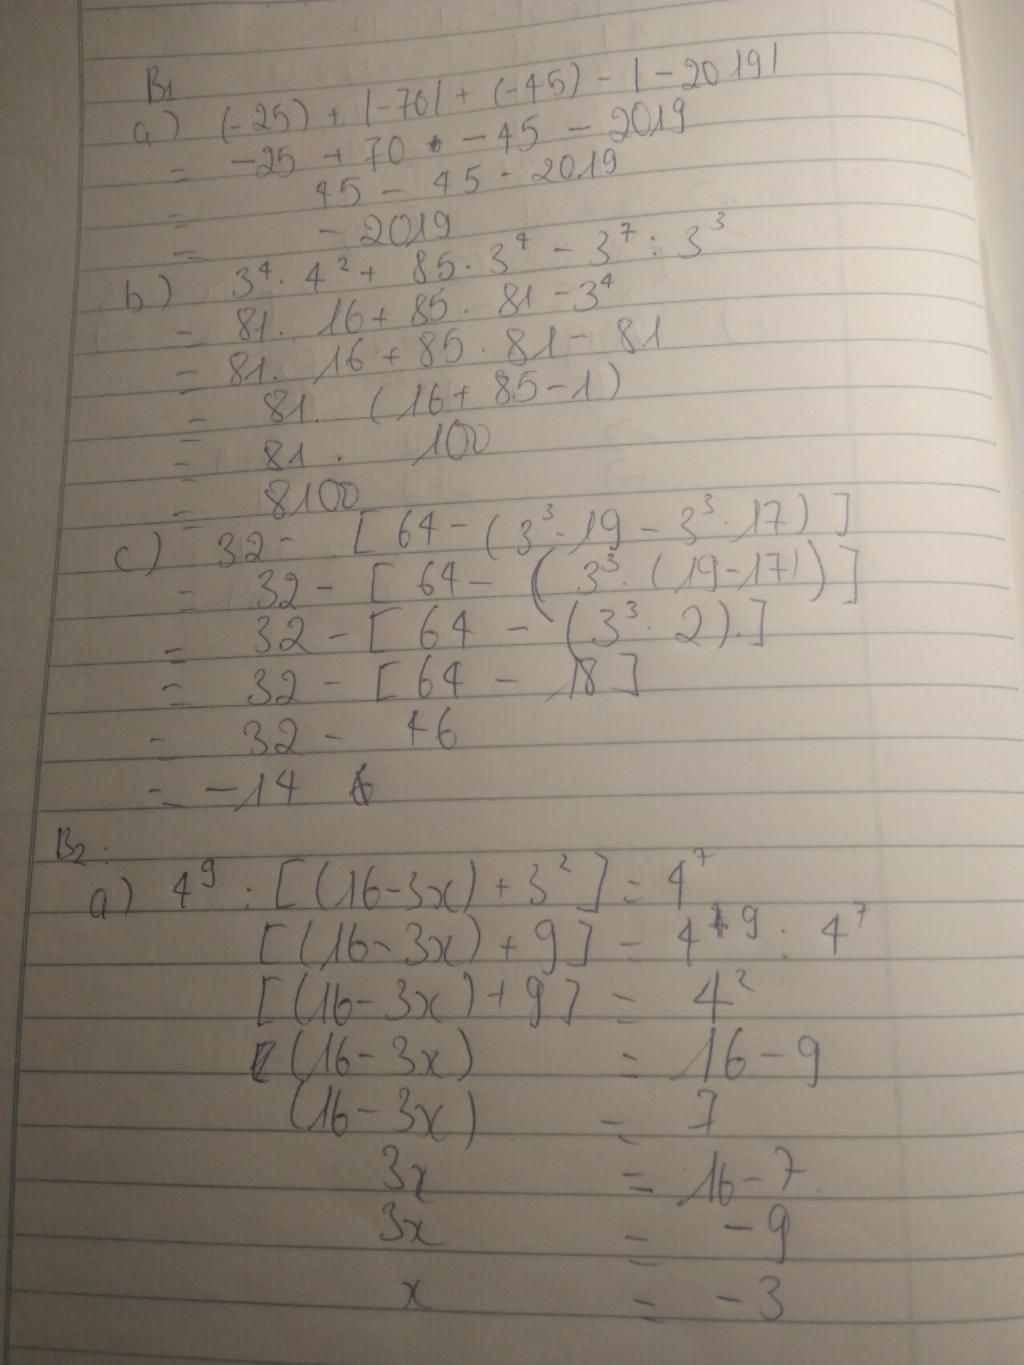 B1
a) (-25) + |-70| + (-45) - |-2019|
= -25 + 70 - 45 - 2019
= 45 - 45 - 2019
= - 2019
b) 3⁴ . 4² + 85 . 3⁴ - 3⁷ : 3³
= 81 . 16 + 85 . 81 - 3⁴
= 81 . 16 + 85 . 81 - 81
= 81 . (16 + 85 - 1)
= 81 . 100
= 8100
c) 32 - [64 - (3³ . 19 - 3³ . 17)]
= 32 - [64 - (3³ . (19 - 17))]
= 32 - [64 - (3³ . 2).]
= 32 - [64 - 18]
= 32 - 46
= -14
B2:
a) 4⁹ : [(16 - 3x) + 3²] = 4⁷
[(16 - 3x) + 9] = 4⁹ : 4⁷
[(16 - 3x) + 9] = 4²
(16 - 3x) = 16 - 9
(16 - 3x) = 7
3x = 16 - 7
3x = - 9
x = - 3